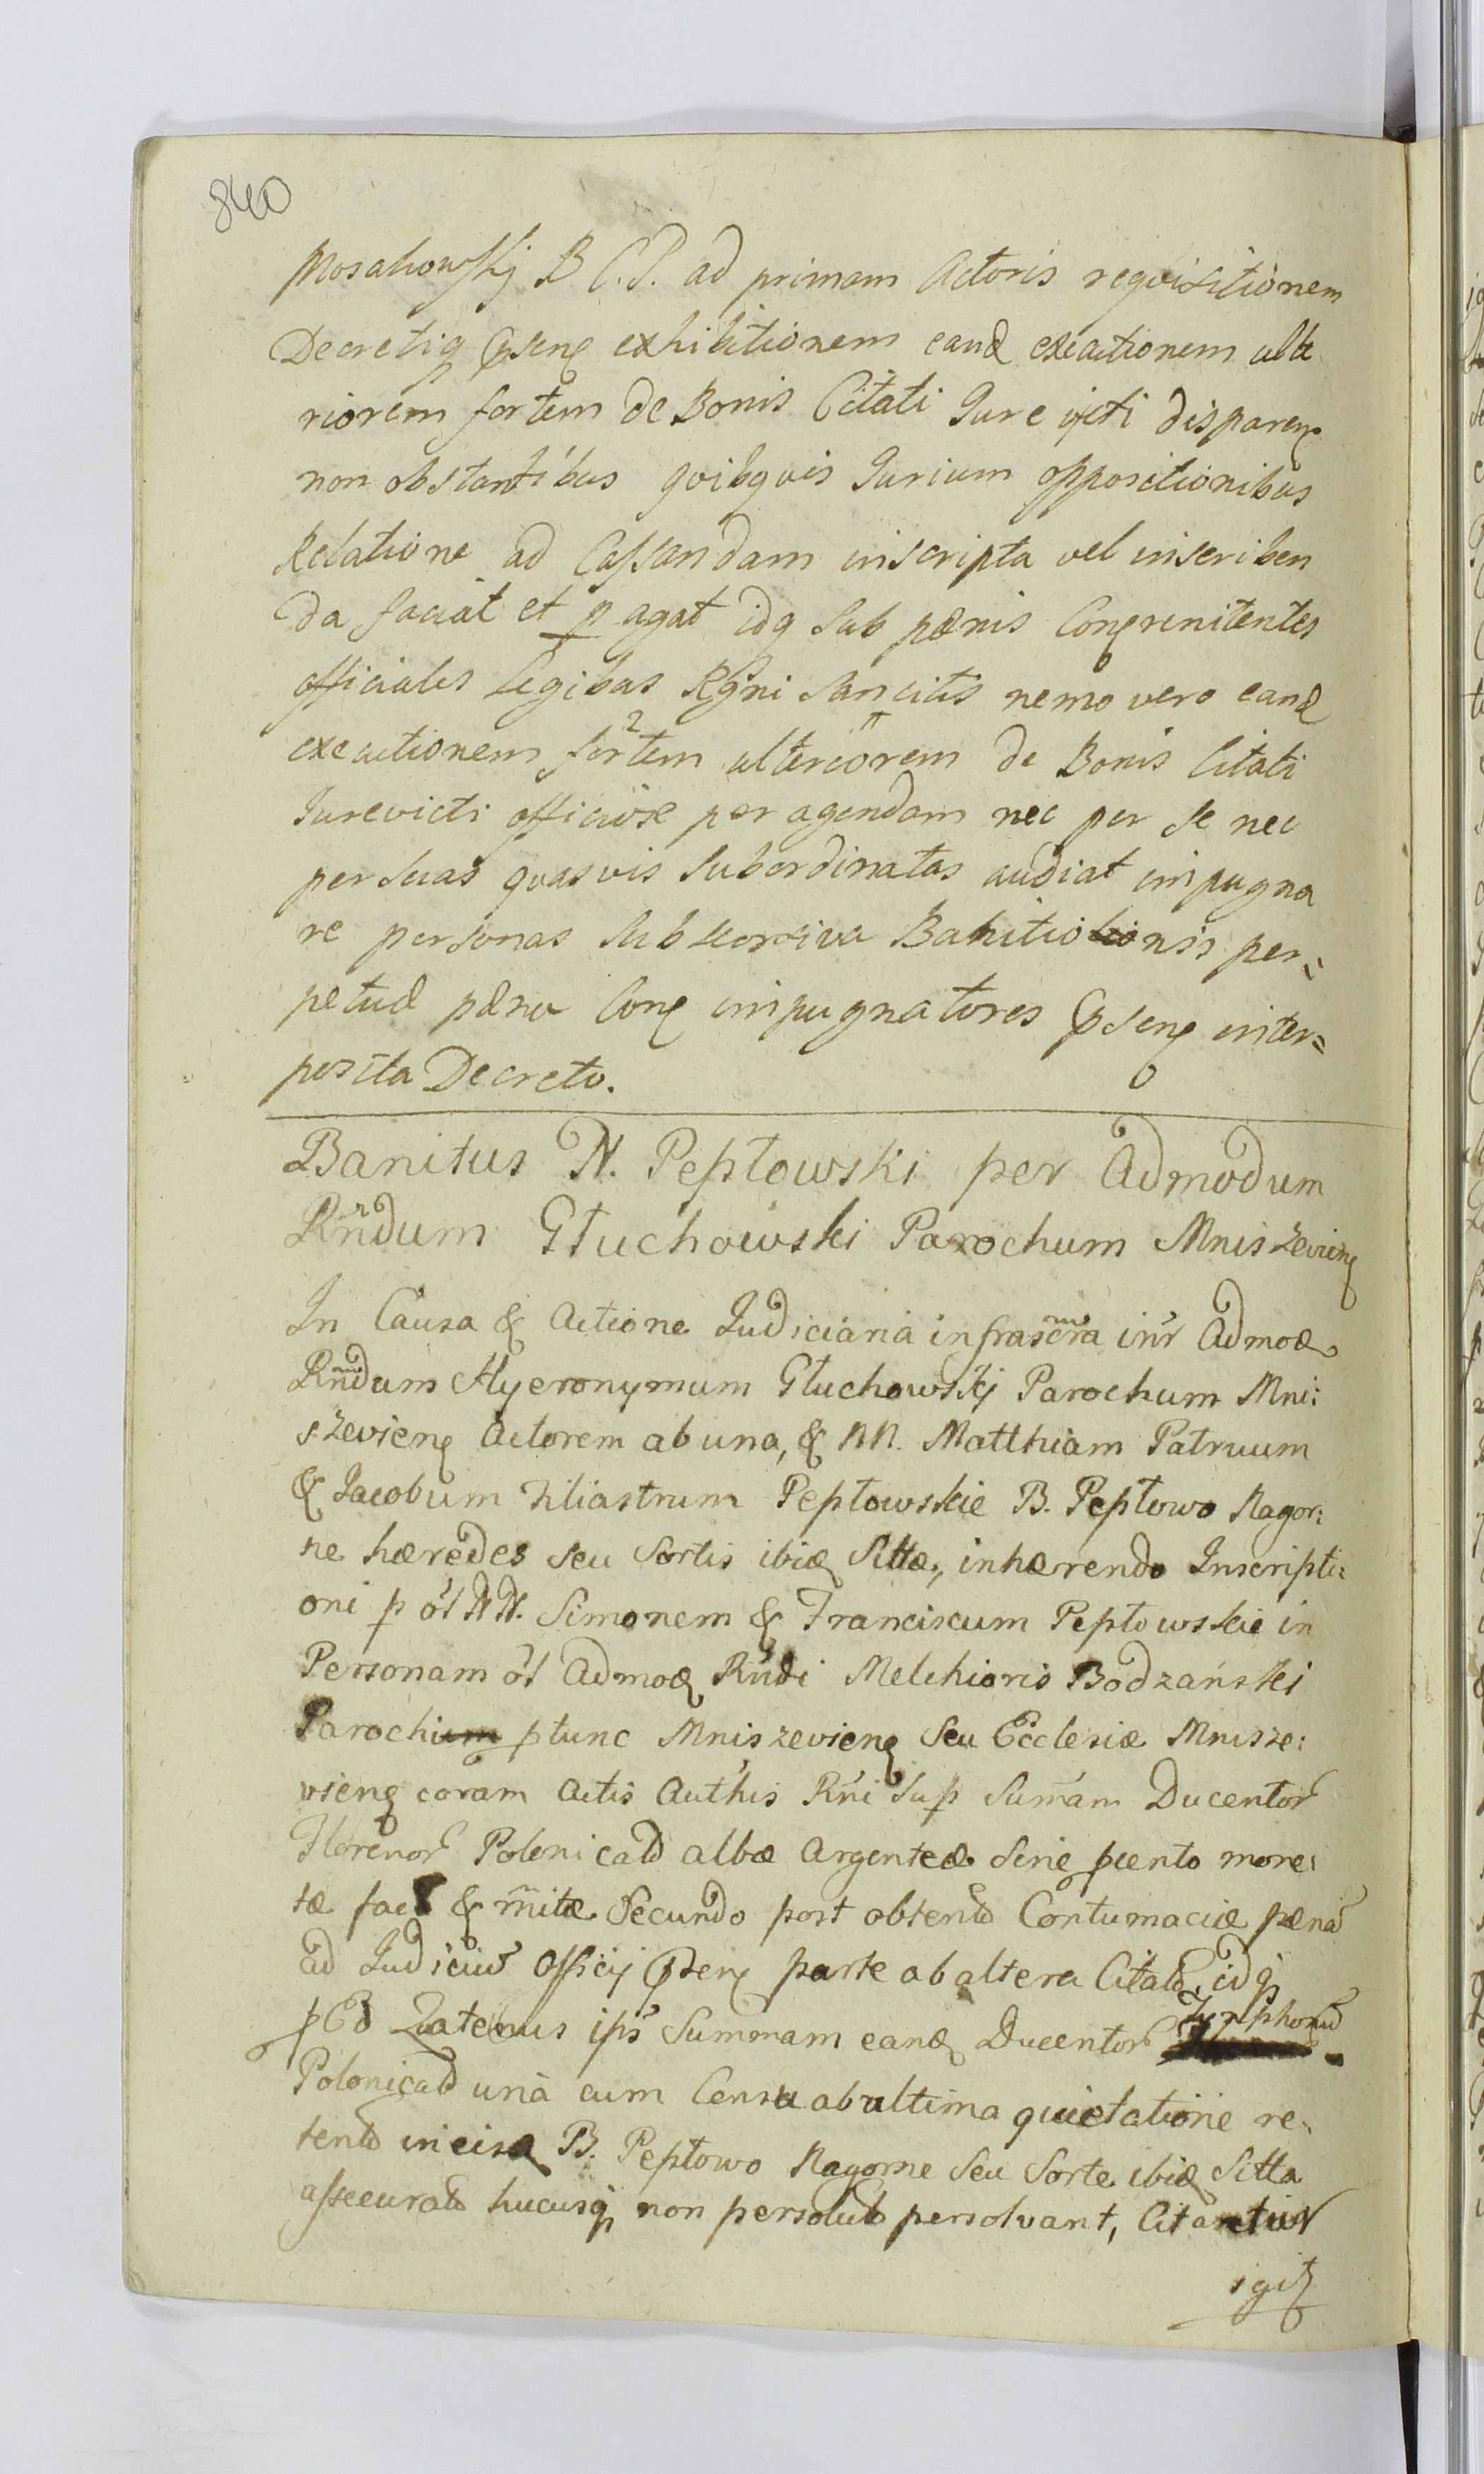 840
Mosakowskj B C.P. ad primam Actoris requisitionem
Decretiq pseng exhibitionem eand exeutionem ulte
riorem fortem de Bonis Citati Jure victi disparem
non obstantibus quibquis Jurium oppositionibus
Relatione ad Cassandam inscripta vel inscriben
da faciat et p agat idq sub pænis Conqrenitentes
officiales Legibus Rgni Sancitis nemo vero eand
exeutionem fortem ulteriorem de Bonis Citati
Jurevicti officiose per agendam nec per se nec
per suas quasvis Subordinatas audiat impugna
re personas sub Banitionis per=
petuæ pæna Cong impugnatores pseng inter=
posita Decreto.
Banitus N. Pepłowski per Admodum
Rndum Głuchowski Parochum Mniszevieng
In Causa & Actione Judiciaria infrascra inr Admod
Rndum Hyeronymum Głuchowskj Parochum Mni:
szevieng Actorem ab una, & NN. Matthiam Patruum
& Jacobum Filiastrum Pepłowskie B. Pepłowo Nagor:
ne hæredes seu Sortis ibid Sittæ, inhærendo Inscripti:
oni p ol NN. Simonem & Franciscum Pepłowskie in
Personam ol Admod Rndi Melchioris Bodzański
Parochium ptunc Mniszevieng Seu Ecclesiæ Mnisze:
vieng coram Actis Authis Rni Sup Sumam Ducentor
Florenor Polonicald albæ Argenteæ Sine pcento mone:
tæ fact & mitæ Secundo post obtentd Contumaciæ pænã
ad Judiciũ Officij pseng parte ab altera Citatd, idq
p Ed Quatenus ips Summam eand Ducentor Tynphonũ
Polonicald unà cum Censu ab ultima quietatione re:
tentd in eisd B. Pepłowo Nagorne Seu Sorte ibid Sitta
assecuratd hucusq non persolutd persolvant, Citantur
igitz